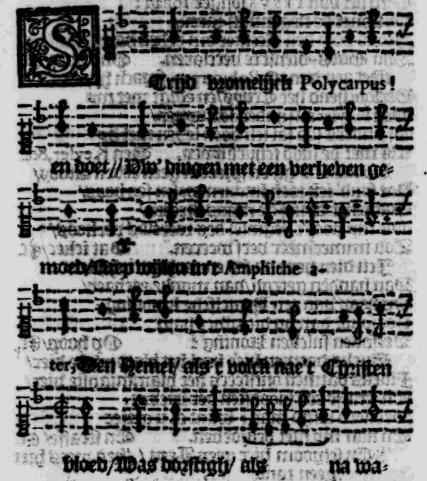 STrijd vromelijck Polycarpus!
en doet // Uw' dingen met een verheven ge-
moed/ Riep wijlen in't Amphithe a-
ter, Den Hemel/ als 't volck nae't Christen
bloed/ Was dorstigh/ als na wa-